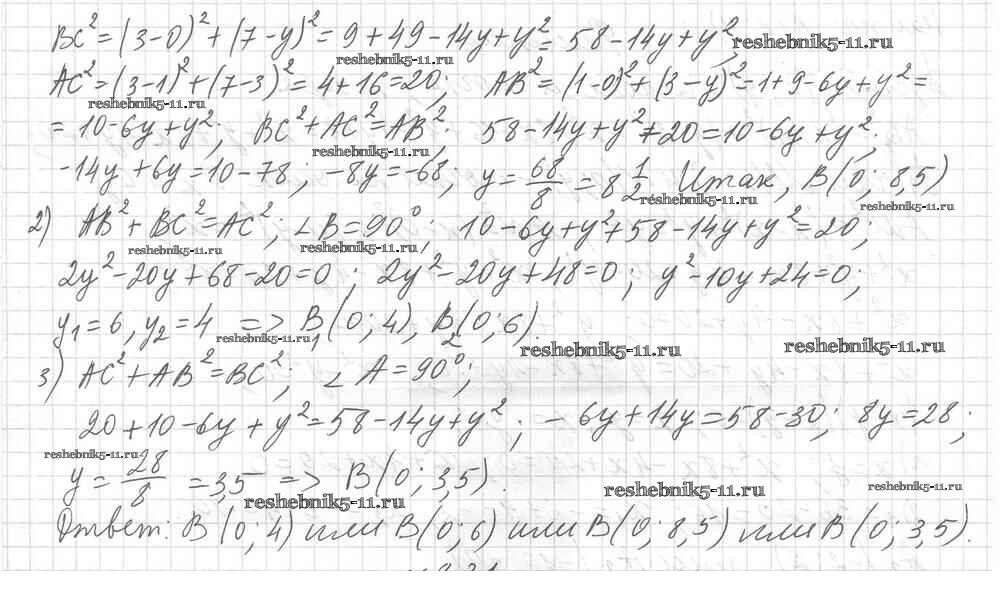 BC² = (3-0)² + (7-y)² = 9 + 49 - 14y + y² = 58 - 14y + y²; reshebnik5-11.ru
reshebnik5-11.ru
AC² = (3-1)² + (7-3)² = 4 + 16 = 20; AB² = (1-0)² + (3-y)² = 1 + 9 - 6y + y² =
reshebnik5-11.ru
= 10 - 6y + y²; BC² + AC² = AB²; 58 - 14y + y² + 20 = 10 - 6y + y²;
reshebnik5-11.ru
-14y + 6y = 10 - 78; -8y = -68; y = 68/8 = 8 1/2. Итак, B(0; 8,5)
reshebnik5-11.ru reshebnik5-11.ru
2) AB² + BC² = AC²; ∠B = 90°; 10 - 6y + y² + 58 - 14y + y² = 20;
reshebnik5-11.ru reshebnik5-11.ru
2y² - 20y + 68 - 20 = 0; 2y² - 20y + 48 = 0; y² - 10y + 24 = 0;
y₁ = 6, y₂ = 4 => B₁(0; 4), B₂(0; 6).
reshebnik5-11.ru reshebnik5-11.ru reshebnik5-11.ru
3) AC² + AB² = BC²; ∠A = 90°;
20 + 10 - 6y + y² = 58 - 14y + y²; -6y + 14y = 58 - 30; 8y = 28;
reshebnik5-11.ru
y = 28/8 = 3,5 => B(0; 3,5).
reshebnik5-11.ru reshebnik5-11.ru reshebnik5-11.ru
Ответ: B(0; 4) или B(0; 6) или B(0; 8,5) или B(0; 3,5).